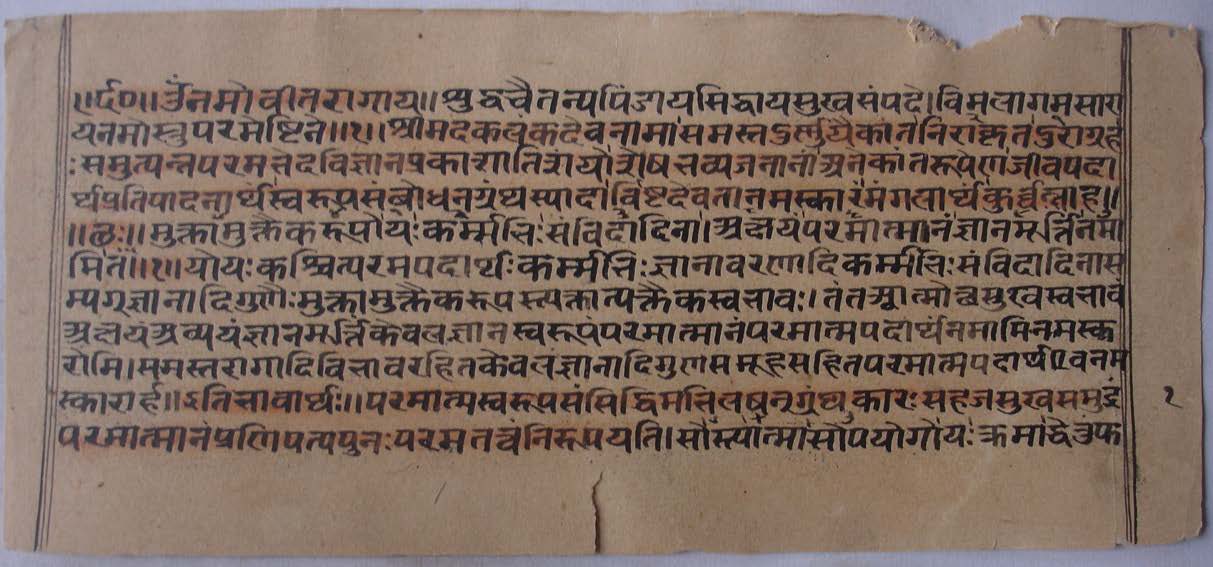 ॥र्द०॥ ॐनमोवीतरागाय॥शुद्धचैतन्यपिंडायसिद्धायसुखसंपदे।विमलागमसारा
यनमोस्तुपरमेष्टिने॥१॥श्रीमदकलंकदेवनामासमस्त
ःसमुत्पन्नपरमभेदविज्ञानप्रकाशातिशयोशेषभव्यजनानांअनेकांतरूपेणजीवपदा
र्थप्रतिपादनार्थंस्वरूपसंबोधनग्रंथस्यादाविष्टदेवतानमस्कारंमंगलार्थंकुर्वन्नाह॥
॥छः॥मुक्तामुक्तैकरूपोयःकर्म्मभिःसंविदादिना।अक्षयंपरमात्मानंज्ञानमूर्त्तिंनमा
मितं॥१॥योयःकश्चित्परमपदार्थःकर्म्मभिःज्ञानावरणादिकर्म्मभिःसंविदादिनास
म्यग्ज्ञानादिगुणैःमुक्तामुक्तैकरूपस्त्यक्तात्यक्तैकस्वभावः।तंतआत्मोत्थसुखस्वभावं
अक्षयंअव्ययंज्ञानमूर्त्तिंकेवलज्ञानस्वरूपंपरमात्मानंपरमात्मपदार्थंनमामिनमस्क
रोमि।समस्तरागादिविभावरहितकेवलज्ञानादिगुणसमूहसहितपरमात्मपदार्थएवनम
स्कारार्ह॥इतिभावार्थः॥परमात्मस्वरूपसंसिद्धिमभिलषन्ग्रंथकारःसहजसुखसमुद्रं
परमात्मानंप्रणिपत्यपुनःपरमतत्वंनिरूपयति।सोस्त्यात्मासोपयोगोयःक्रमाद्धेतुफ
१